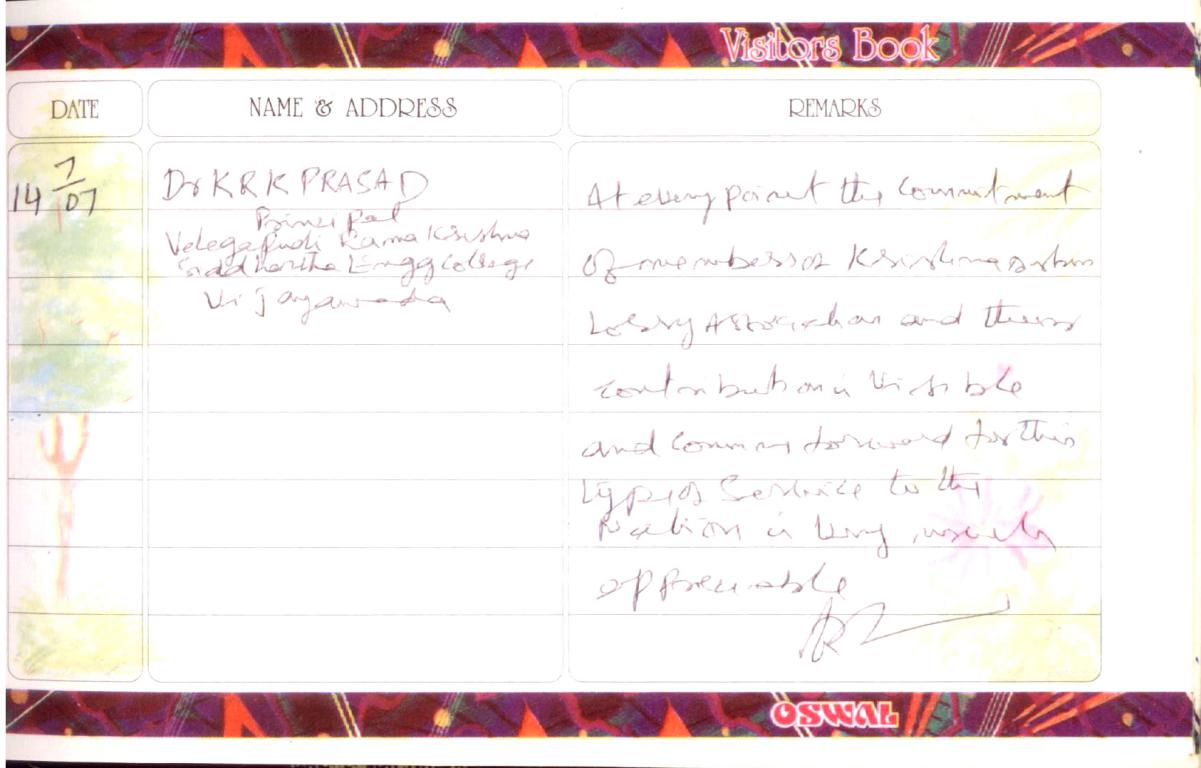 Visitors Book
DATE
NAME & ADDRESS
REMARKS
14 7/07
Dr K R K PRASAD
Principal
Velagapudi Ramakrishna
Siddhartha Engg College
Vijayawada
At every point the Commitment
of members of Krishna
Association and their
contribution is visible
and Coming forward for this
type of Service to the
Nation is very much
appreciable
OSWAL